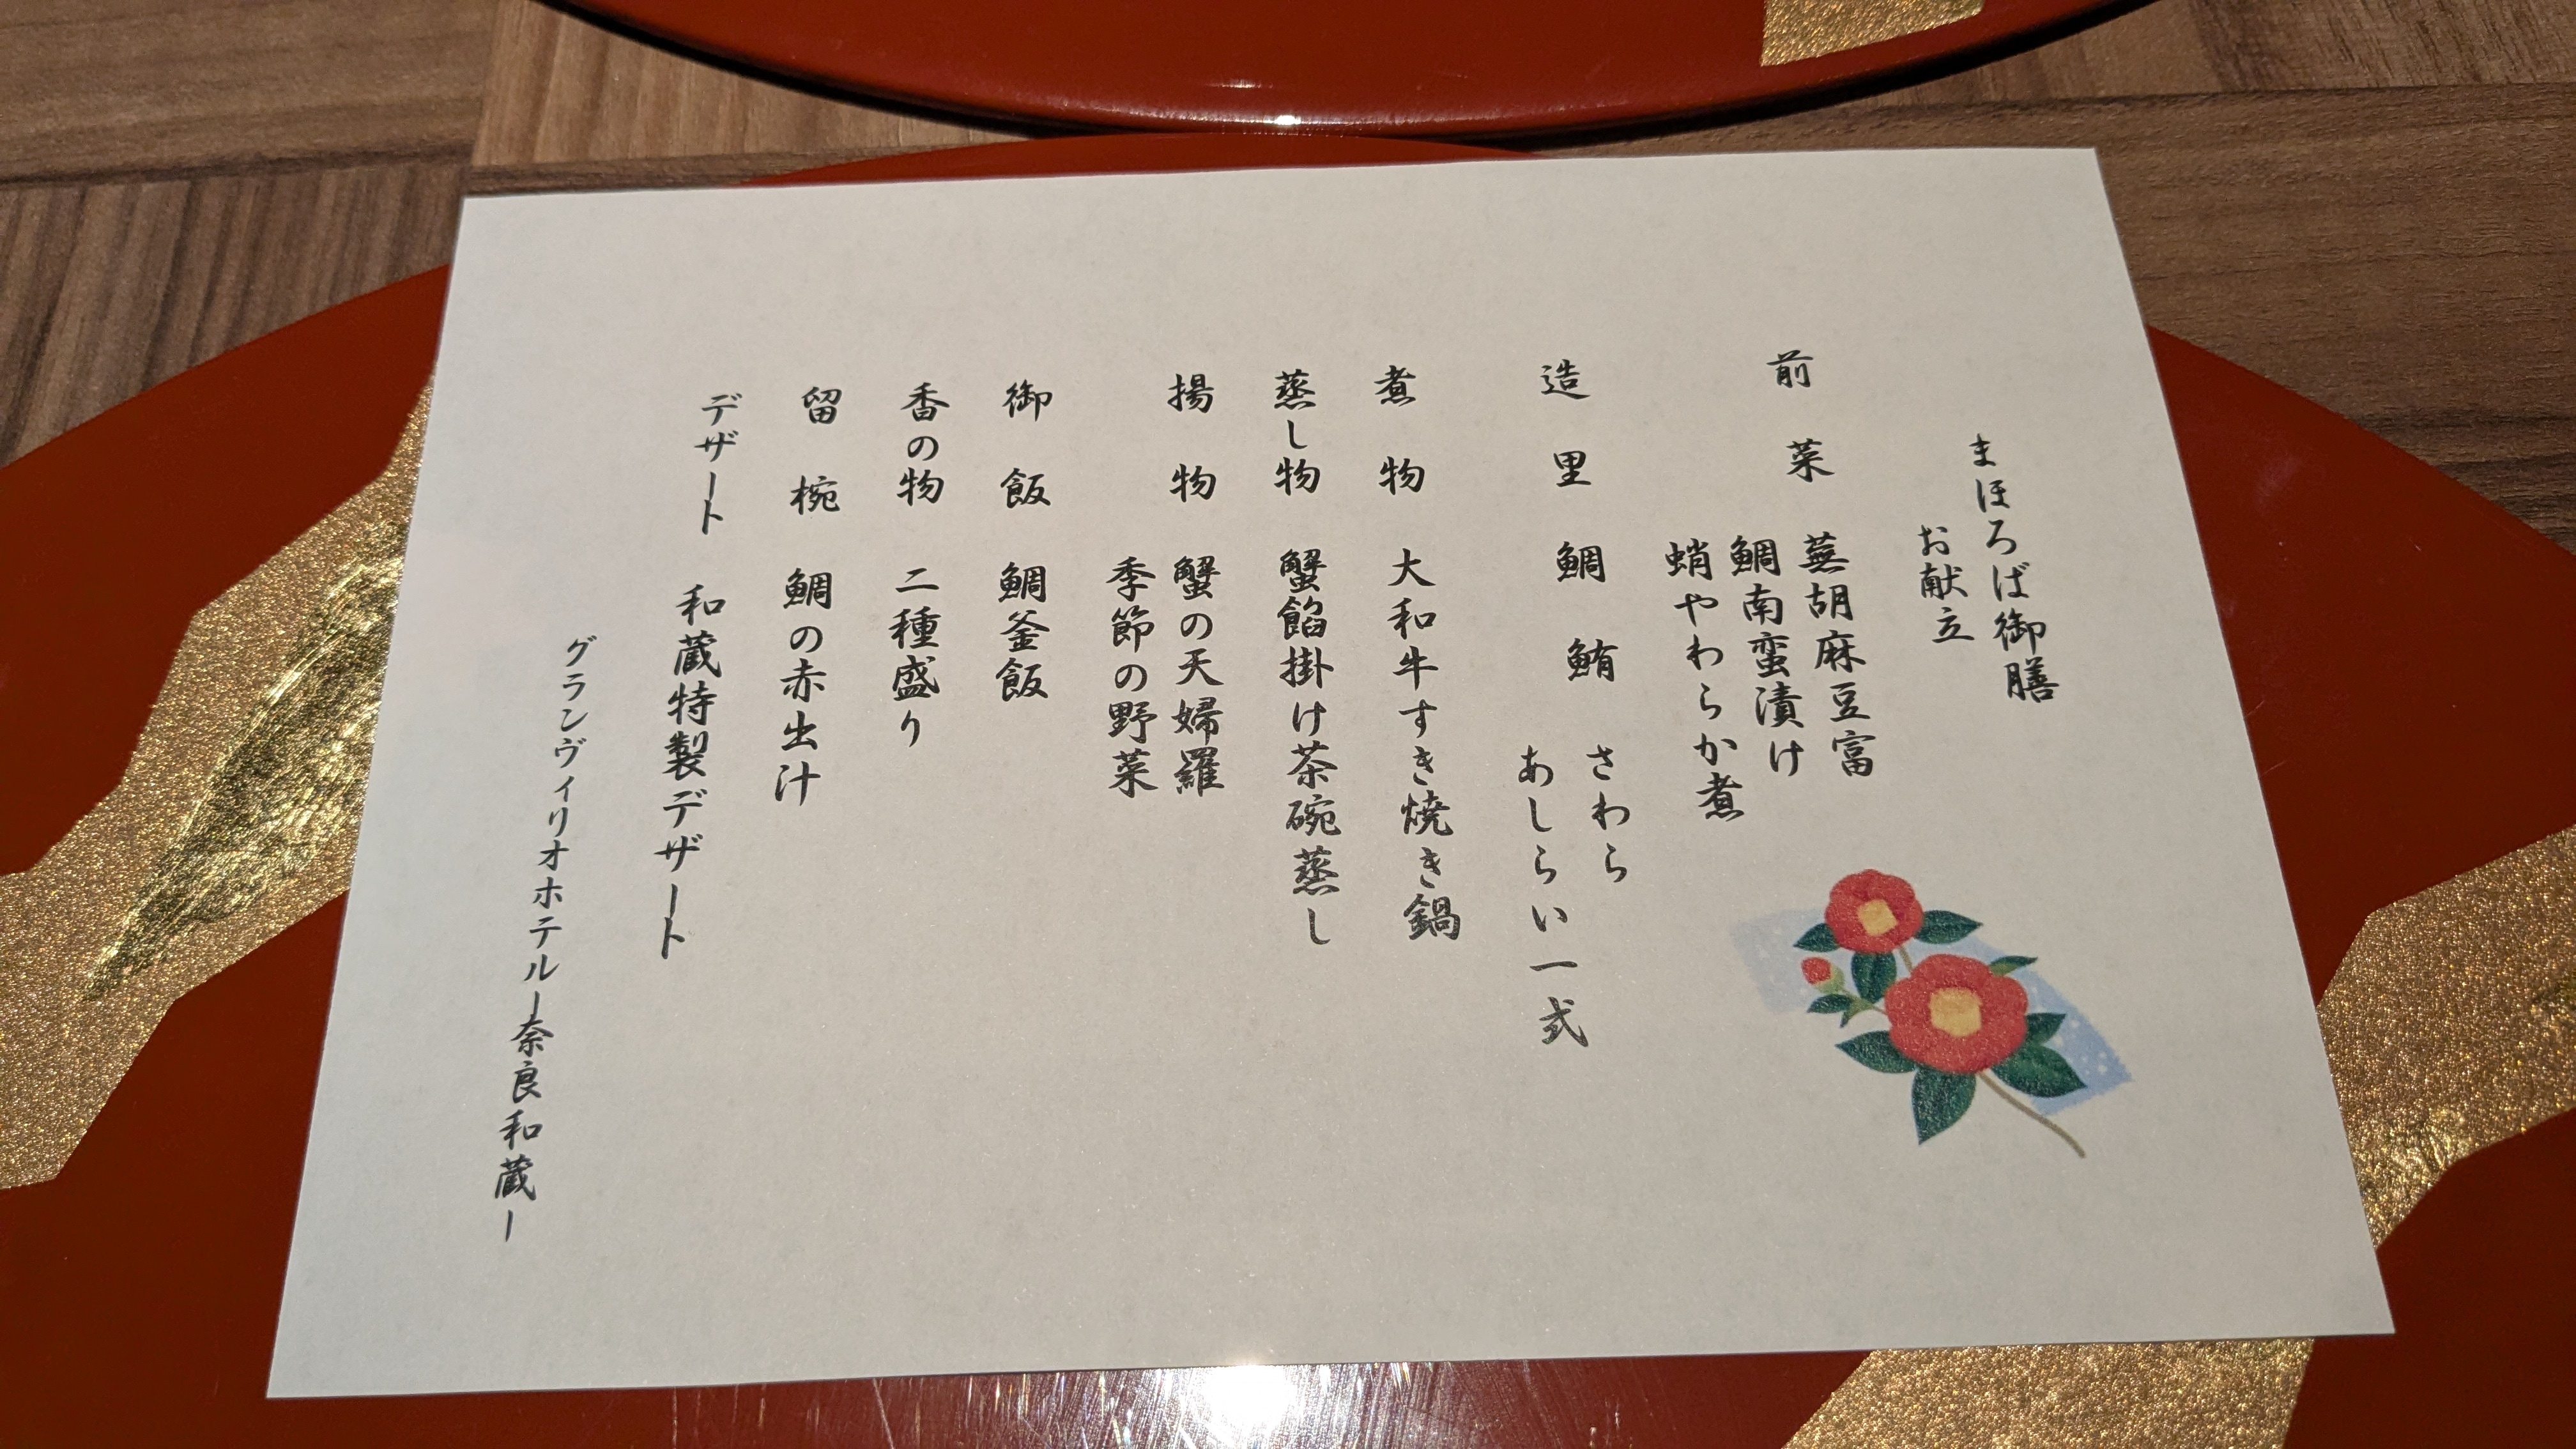 まほろば御膳
お献立
前菜 蕪胡麻豆富
鯛南蛮漬け
蛸やわらか煮
造里 鯛 鮪 さわら
あしらい一式
煮物 大和牛すき焼き鍋
蒸し物 蟹餡掛け茶碗蒸し
揚物 蟹の天婦羅
季節の野菜
御飯 鯛釜飯
香の物 二種盛り
留椀 鯛の赤出汁
デザート 和蔵特製デザート
グランヴィリオホテルー奈良和蔵ー